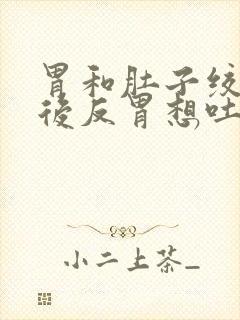 胃和肚子绞
後反胃想吐
小二上茶_